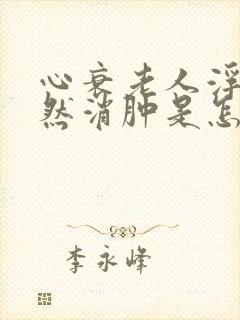 心衰老人浮
然消肿是怎
李永峰